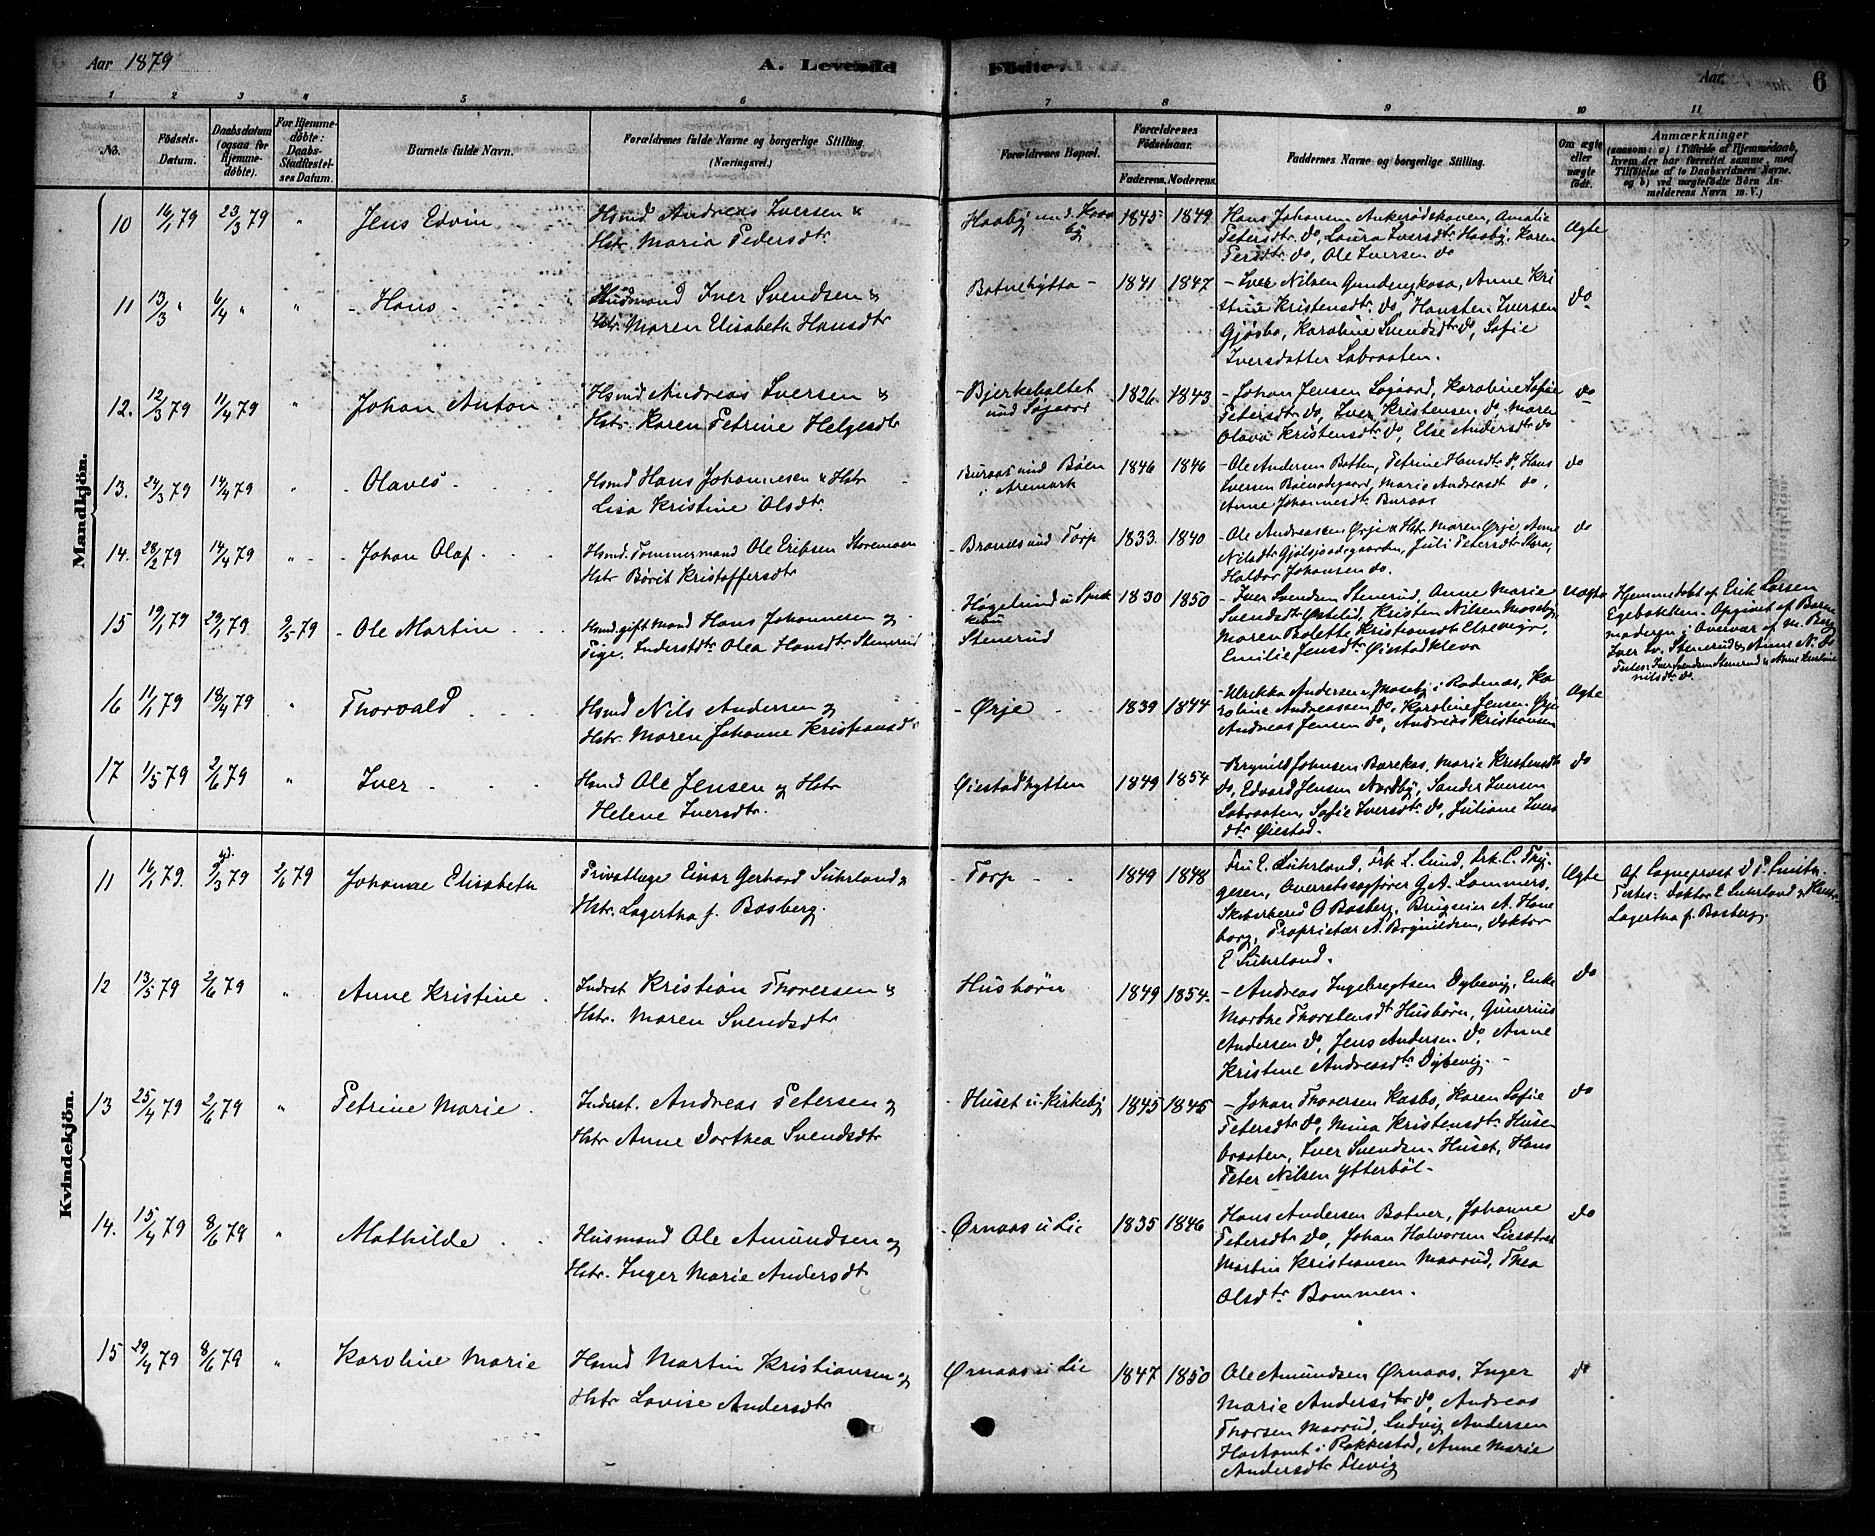 Aar 1879
A. Levende
Fødte.
Aar
6
1 2 3 4 5 6 7 8 9 10 11
No.
Fødsels-
Datum.
Daabsdatum
(ogsaa for
Hjemme-
døbte).
For Hjemme-
døbte:
Daabs-
Stadfæstel-
ses Datum.
Barnets fulde Navn.
Forældrenes fulde Navne og borgerlige Stilling.
(Næringsvei.)
Forældrenes Bopæl.
Forældrenes
Fødselsaar.
Faderens. Moderens.
Faddernes Navne og borgerlige Stilling.
Om ægte
eller
uægte
født.
Anmærkninger
(saasom: a) i Tilfælde af Hjemmedaab,
hvem der har forrettet samme, med
Tilføielse af to Daabsvidners Navne,
og b) ved uægtefødte Børn An-
melderens Navn m. V.)
Mandkjön.
10 16/1 79 23/3 79 " Jens Edvin
Hsmd Andreas Iversen &
Hstr. Maria Pedersdtr
Haaby und. Haa
by
1845 1849
Hans Johansen Ankerødskoven, Amalie
Petersdtr. do, Laura Iversdtr Haaby, Karen
Persdtr do, Ole Iversen do
Ægte
11 13/3 " 6/4 " " - Hans -
Husmand Iver Svendsen &
Hstr. Maren Elisabeth Hansdtr
Botnehytta -
1841 1847
- Iver Nilsen, Anne Kri
stine Kristensdtr do, Hansten Iversen
Gjøsbo, Karoline Svendsdtr do, Sofie
Iversdatter Labraaten.
do
12. 12/3 79 11/4 79 " Johan Anton
Hsmd. Andreas Iversen &
Hstr. Karen Petrine Helgesdtr
- Bjerkeholtet
und Søgaard
1826 1843
- Johan Jensen Søgaard, Karoline Sofie
Petersdtr do, Iver Kristensen do, Maren
Olava Kristensdtr do, Else Andersdtr do
do
13. 24/3 79 14/4 79 " - Olaves
Hsmd Hans Johannesen & Hstr
Lisa Kristine Olsdtr.
Buraas und Bøen
i Aremark
1846 1846
- Ole Andersen Botten, Petrine Hansdtr do, Hans
Iversen Bøenødegaard, Marie Andreasdt do,
Anne Johannesdtr Buraas
do
14. 28/2 79 14/4 79 " - Johan Olaf
Hsmd. Tømmermand Ole Eriksen Storemoen
Hstr Børit Kristoffersdtr
- Branæs und Torp
1833 1840
- Ole Andreassen Ørje & Hstr Maren Ørje, Anne
Nilsdtr Gjølsjøødegaarden, Juli Petersdtr Skara,
Haldor Johansen do.
do
15 19/1 79 29/1 79 9/5 79 - Ole Martin
Hsmd. gift Mand Hans Johannesen og
Pige, Inderstdtr. Olea Hansdtr Stenerud
Stenerud
1830 1850
- Iver Svendsen Stenerud, Anne Marie
Svendsdtr Østelid, Kristen Nilsen Moseby,
Maren Bolette Kristiansdtr Elsevigr,
Emilie Jensdtr Øiestadkleva
Uægte
Hjemmedøbt af Erik Larsen
Egebakken - Opgivet af Barne
moderen i Overvær af M. Berg
Iver Sv. Stenerud & Anne N. do
Testes: Iver Svendsen Stenerud & Anne Kirstine
Nilsdtr do.
16 11/1 79 18/4 79 " Thorvald
Hsmd Nils Andersen og
Hstr. Maren Johanne Kristiansdtr
- Ørje
1839 1844
- Ulrikka Andersen, Moseby i Rødenæs, Ka
roline Andreassen do, Karoline Jensen Ørje
Andreas Jensen do, Andreas Kristiansen
Ægte
17 1/5 79 2/6 79 " Iver
Hsmd Ole Jensen og Hstr
Helene Iversdtr.
Øiestadhytten
1849 1854
- Brynild Johnsen Bærekas, Marie Kristensdtr
do, Edvard Jensen Nordby, Sander Iversen
Labraaten, Sofie Iversdtr do, Juliane Ivers
dtr Øiestad.
do
Kvindekjön.
11 16/1 79. 9/3 79 2/6 79 Johanne Elisabeth
Privatlæge Einar Gerhard Suhrland &
Hstr. Lagertha f. Bosberg.
- Torp
1849 1848
Fru E. Suhrland, Frk L. Lund, Frk. C. Thy-
gesen, Overretssagfører G. A. Lammers,
O Bosberg, Brugseier A. Hane
borg, Proprietær A. Brynildsen, Doktor
E Suhrland.
Ægte
Af Sogneprest D. P. Smith.
Testes: Doktor E Suhrland & Hustr.
Lagertha f. Bosberg.
12 13/5 79 2/6 79 " Anne Kristine
Inderst Kristian Thoresen &
Hstr. Maren Svendsdtr
Husbørn
1849 1854.
- Andreas Ingebregtsen Dybevig, Enke
Marthe Thorstensdt Husbørn, Gunerius
Andersen do, Jens Andersen do, Anne
Kristine Andreasdtr Dybevig. -
do
13 25/4 79 2/6 79 " Petrine Marie
Inderst. Andreas Petersen og
Hstr Anne Dorthea Svendsdtr
Huset u. Kirkeby
1845 1845
- Johan Thoresen Kasbo, Karen Sofie
Petersdtr do, Mina Kristensdtr Husen
braaten, Iver Svendsen Huset, Hans
Peter Nilsen Ytterbøl -
do
14. 15/4 79 8/6 79 " Mathilde
Husmand Ole Amundsen og
Hstr. Inger Marie Andersdtr
Ørnaas u Lie
1835 1846
Hans Andersen Botner, Johanne
Petersdtr do, Johan Halvorsen
Martin Kristiansen Maarud, Thea
Olsdtr Bommen.
do
15 29/4 79 8/6 79 " Karoline Marie
Hsmd Martin Kristiansen og
Hstr Lovise Andersdtr
Ørnaas u. Lie
1847 1850
Ole Amundsen Ørnaas, Inger
Marie Andersdtr do, Andreas
Thorsen Maarud, Ludvig Andersen
i Rakkestad, Anne Marie
Andersdtr Flevig
do